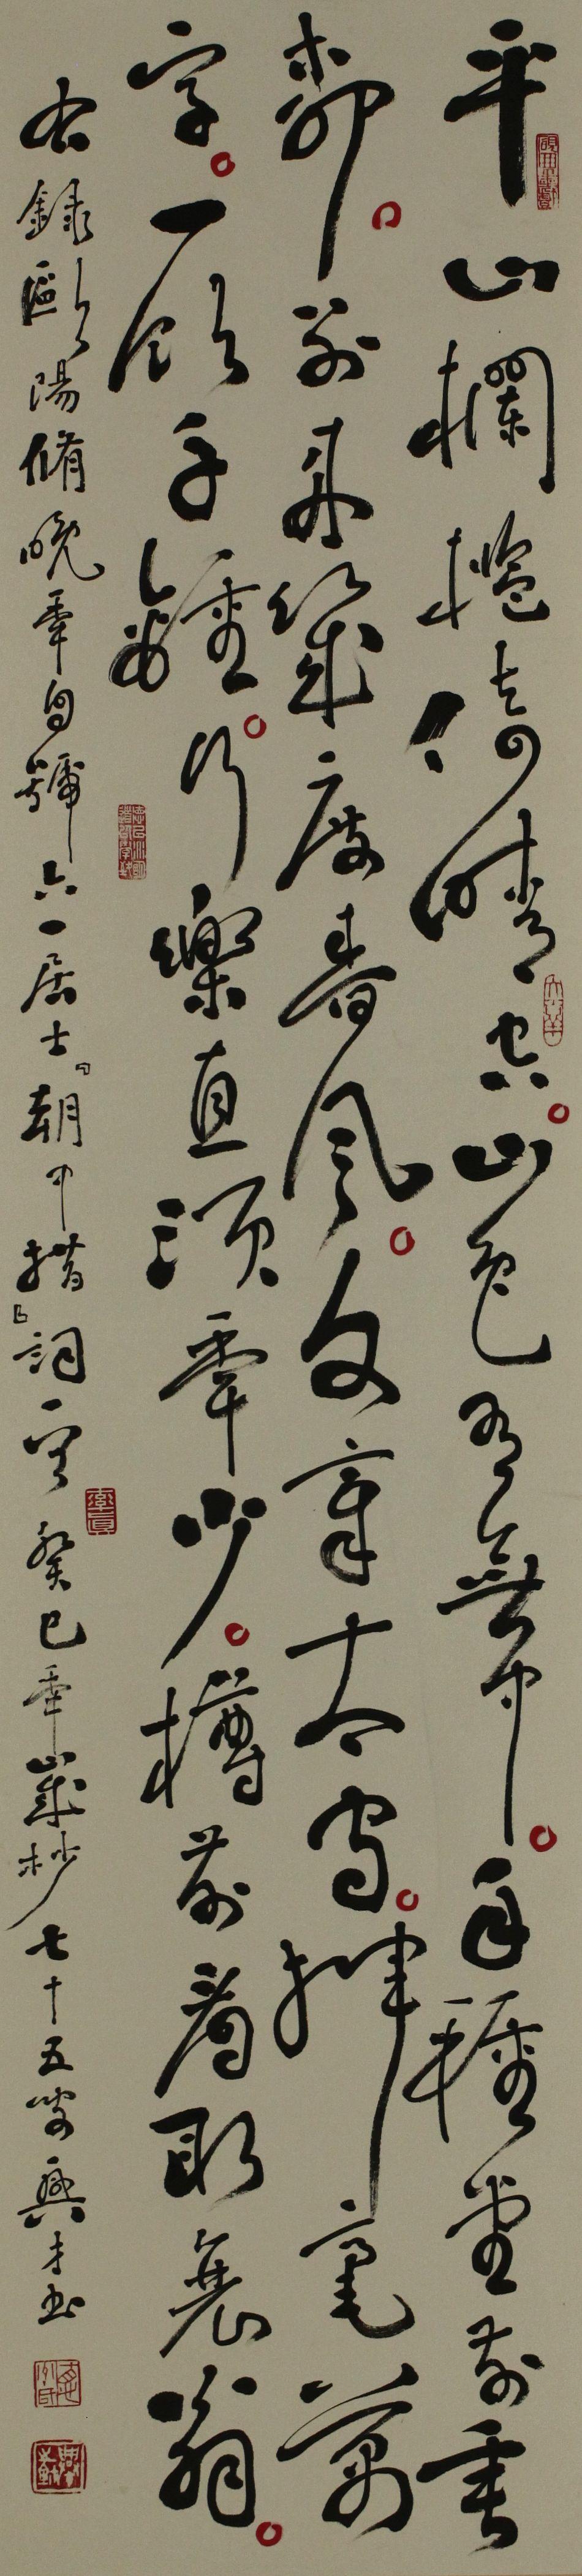 平山欄檻倚晴空。山色有無中。手種堂前垂
柳。別來幾度春風。文章太守。揮毫萬
字。一飲千鍾。行樂直須年少。樽前看取衰翁。
右錄歐陽脩晚年自號六一居士「朝中措」詞 癸巳年歲杪七十五叟興才書